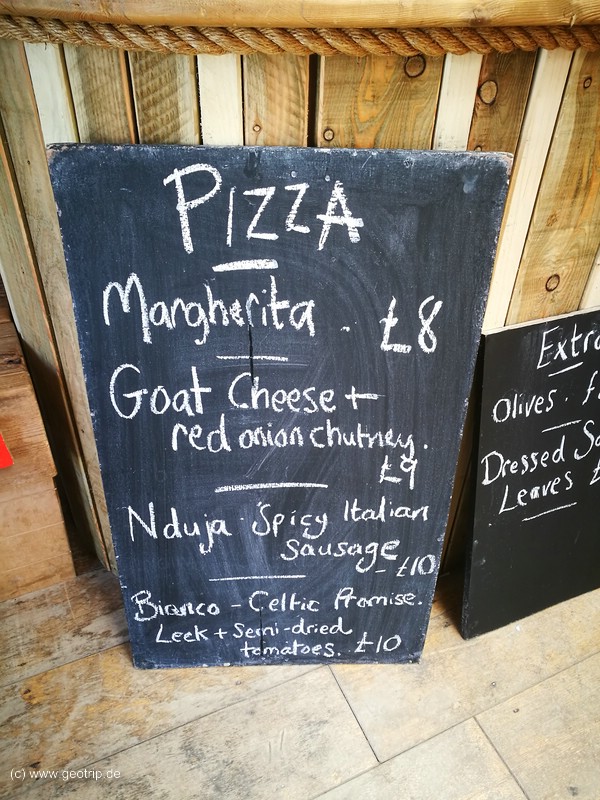 PIZZA
Margherita . £8
Goat Cheese +
red onion chutney.
£9
Nduja - Spicy Italian
Sausage
- £10
Bianco - Celtic Promise.
Leek + Semi-dried
tomatoes. £10
Extra
Olives . £
Dressed
Leaves £
(c) www.geotrip.de